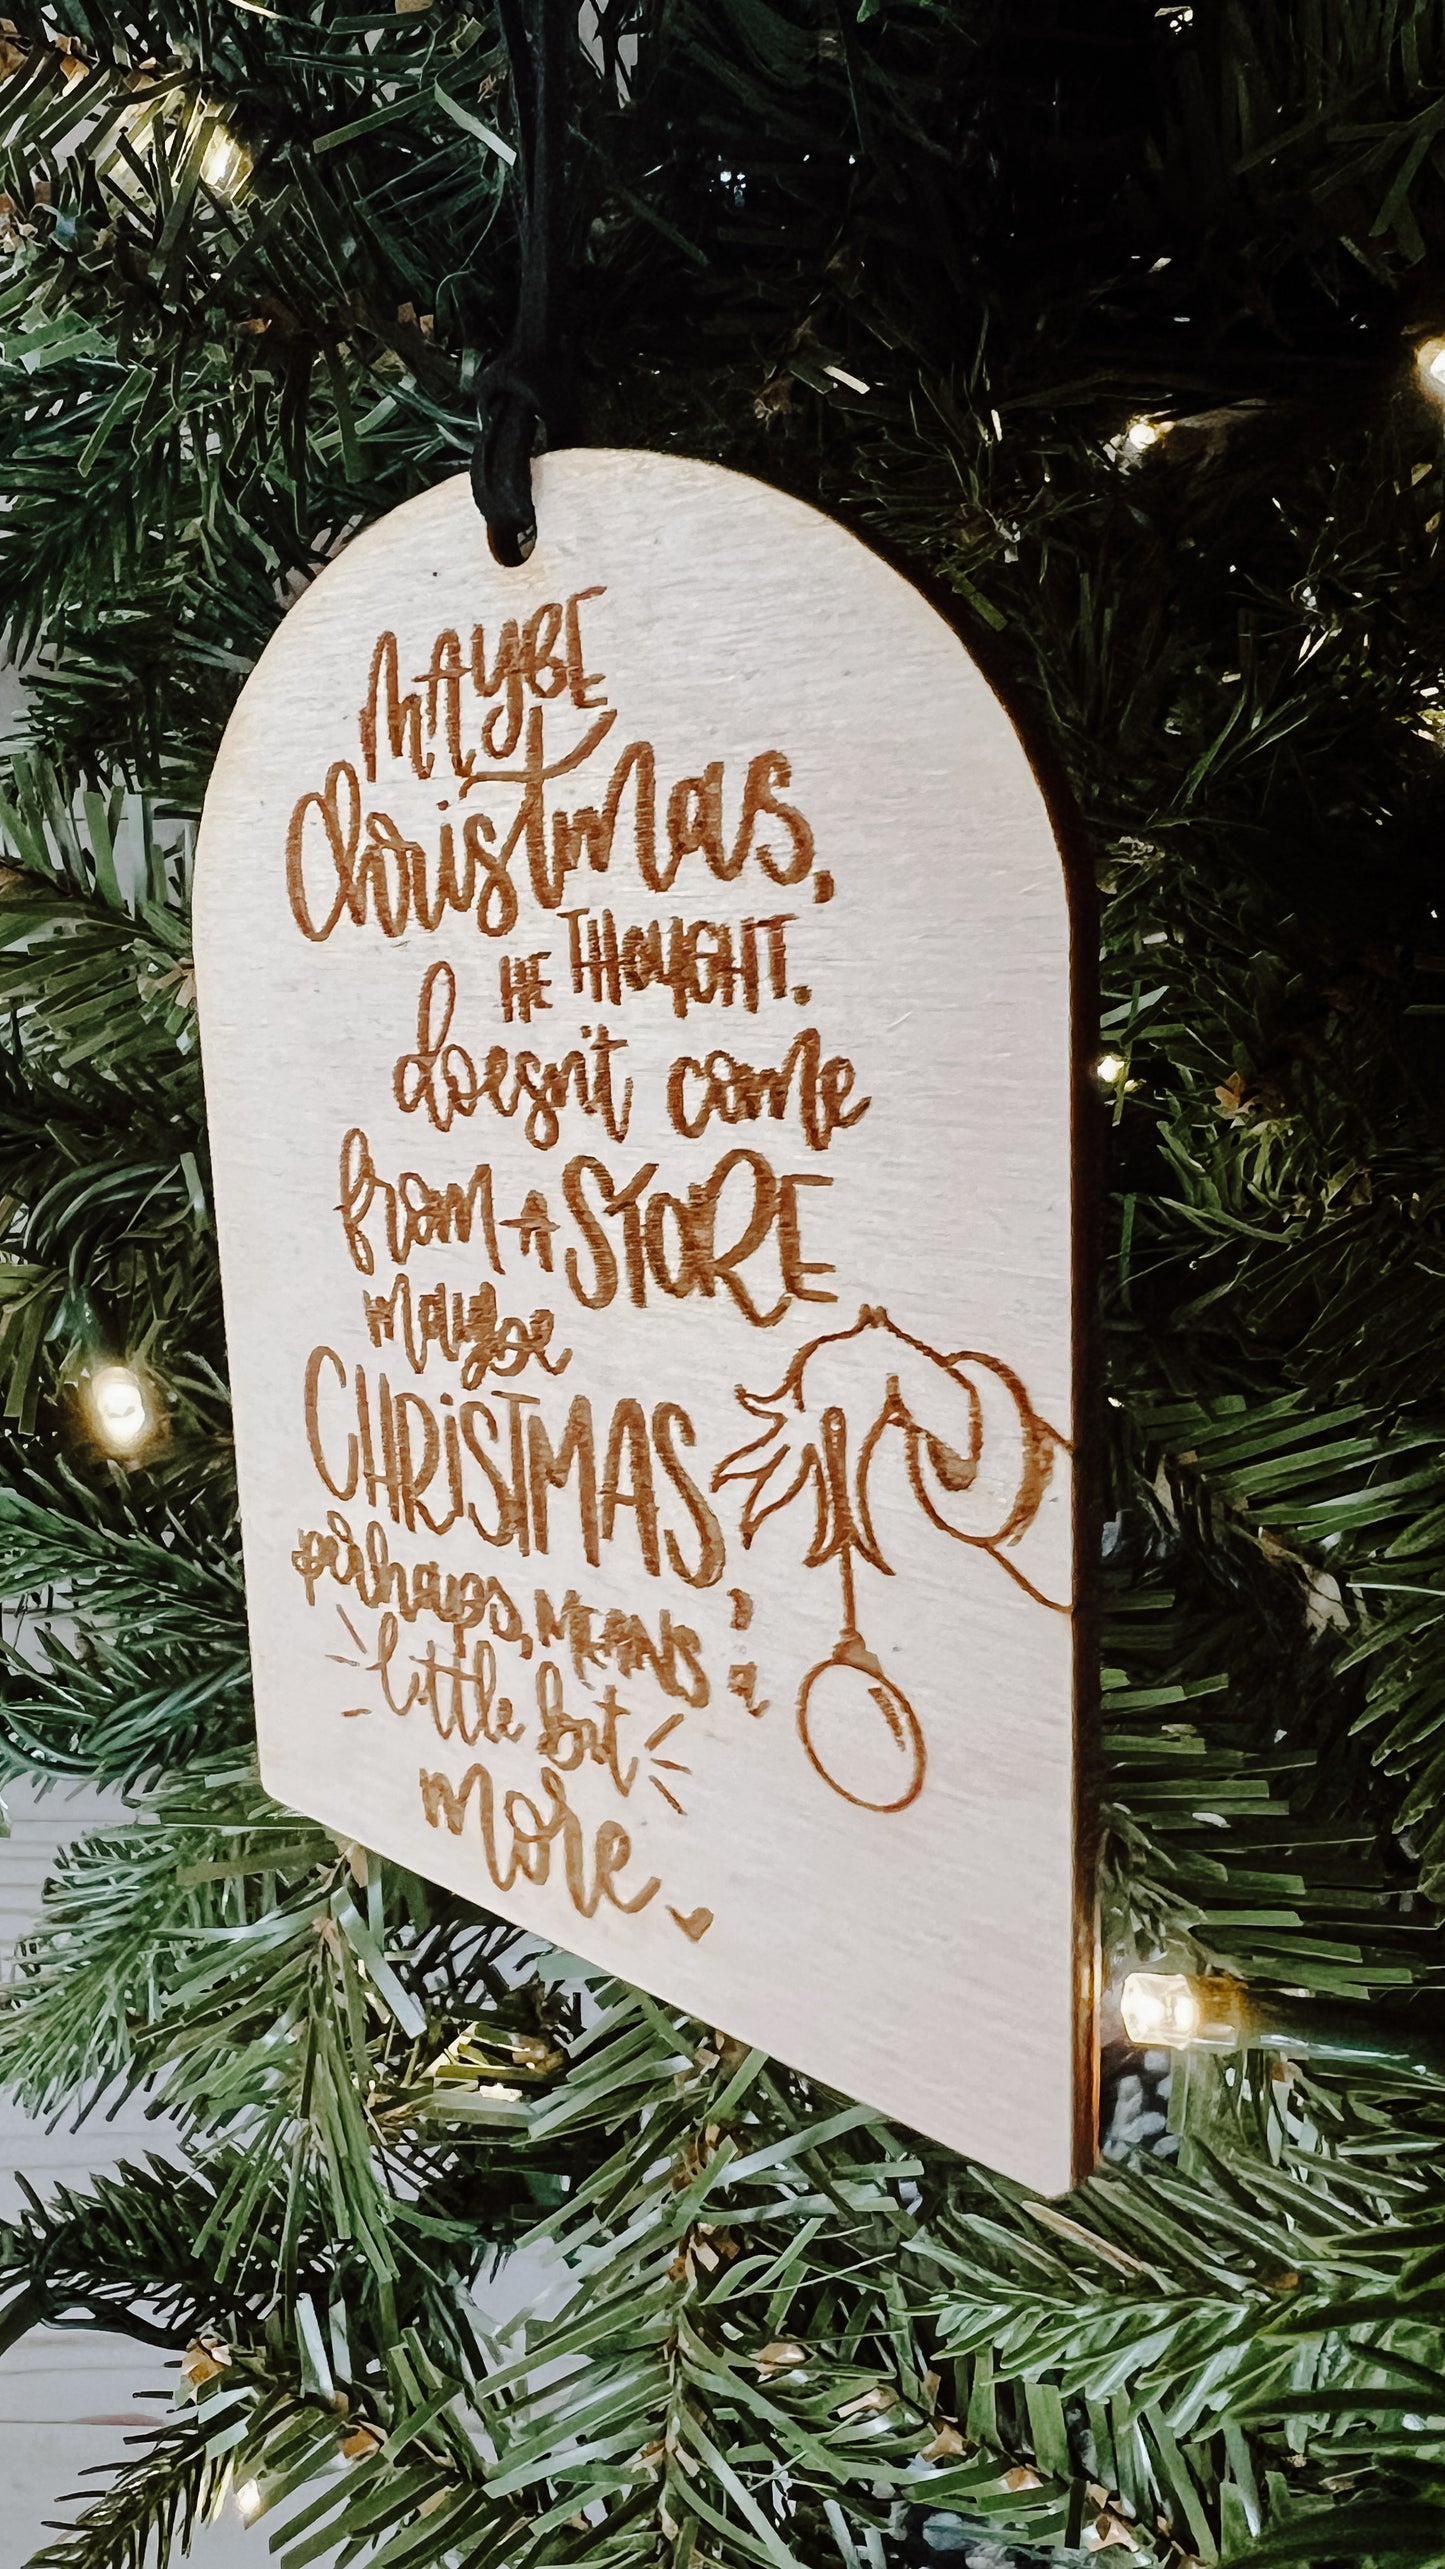 MAYBE
Christmas,
HE THOUGHT.
doesn't come
from A STORE
maybe
CHRISTMAS,
perhaps, MEANS a
little bit
more.